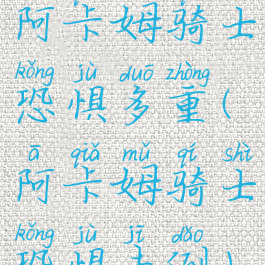 阿卡姆骑士
kǒng jù duō zhòng
恐惧多重(
ā qiǎ mǔ qí shì
阿卡姆骑士
kǒng jù jī dǎo